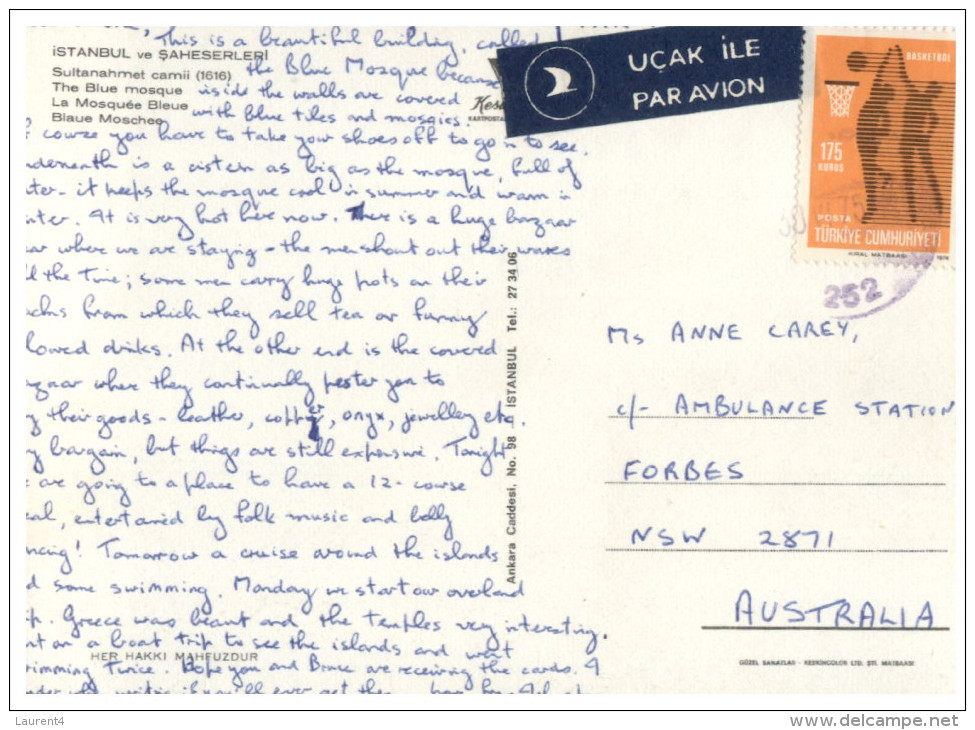 This is a beautiful building, called
İSTANBUL ve ŞAHESERLERİ
Sultanahmet camii (1616)
The Blue mosque
La Mosquée Bleue
Blaue Moschee
the Blue Mosque because
inside the walls are covered
with blue tiles and mosaics.
KARTPOSTAL
course you have to take your shoes off to go in to see.
is a cistern as big as the mosque, full of
- it keeps the mosque cool in summer and warm in
. It is very hot here now. There is a huge bazaar
where we are staying - the men shout out their wares
the time; some men carry huge pots on their
from which they sell tea or funny
drinks. At the other end is the covered
where they continually pester you to
their goods - leather, copper, onyx, jewellery etc.
bargain, but things are still expensive. Tonight
are going to a place to have a 12-course
, entertained by folk music and belly
! Tomorrow a cruise around the islands
some swimming. Monday we start our overland
. Greece was beaut and the temples very interesting.
on a boat trip to see the islands and went
HER HAKKI MAHFUZDUR
twice. Hope you and Bruce are receiving the cards. I
if you'll ever get them
Ankara Caddesi, No. 98 - İSTANBUL Tel.: 27 34 06
UÇAK İLE
PAR AVION
BASKETBOL
175
KURUŞ
POSTA
TÜRKİYE CUMHURİYETİ
KIRAL MATBAASI
252
Ms ANNE CAREY,
c/- AMBULANCE STATION
FORBES
NSW 2871
AUSTRALIA
GÜZEL SANATLAR - KESKİNCOLOR LTD. ŞTİ. MATBAASI
Laurent4
delcampe.net